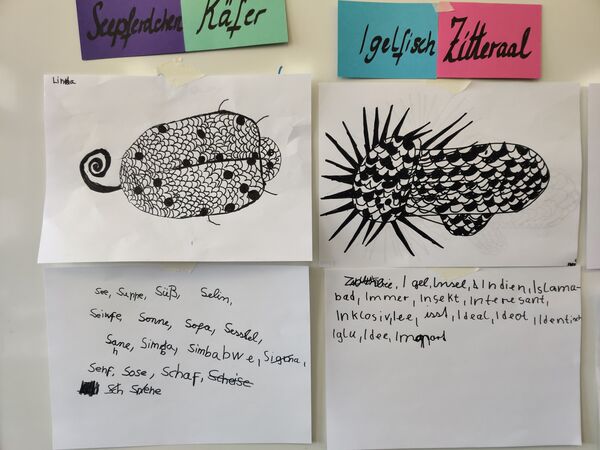 Seepferdchen Käfer
Igelfisch Zitteraal
Linda
See, Suppe, Süß, Selin,
Seinfe, Sonne, Sofa, Sessel,
Sahne, Simba, Simbabwe,
Senf, Sose, Schaf, Scheise
Sch
Igel, Insel, Indien, Islama-
bad, Immer, Insekt, Interesant,
Inklosiv, lee, isst, Ideal, Ideot, Identisch
Iglu, Idee, Import